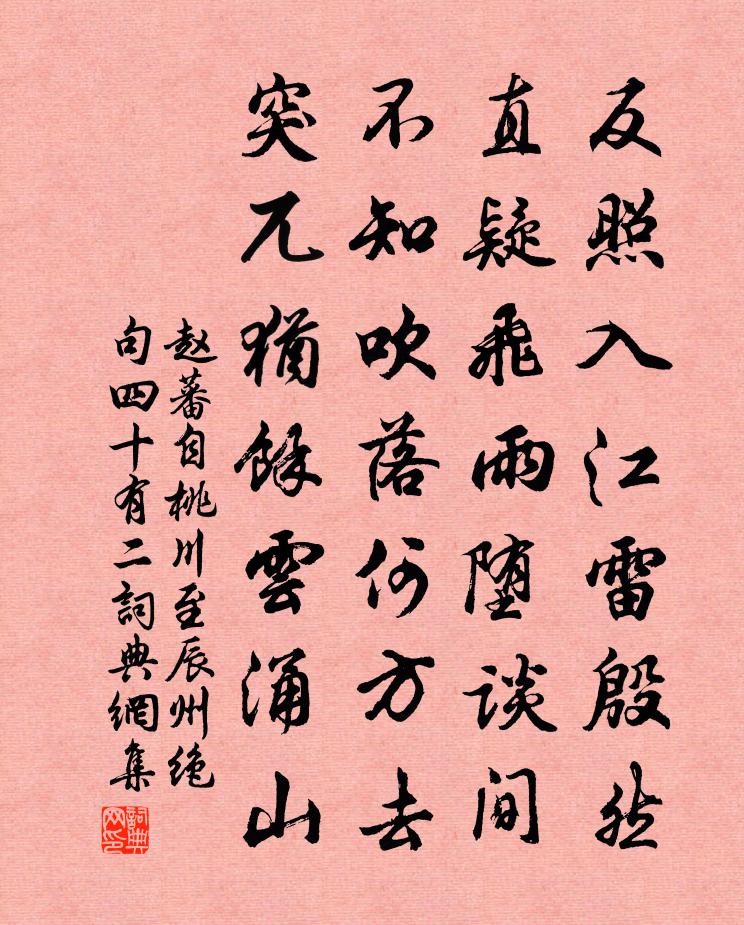 反照入江雷殷然
直疑飛雨堕谈间
不知吹落何方去
突兀猶餘雲涌山
赵蕃自桃川至辰州绝
句四十有二詞典網集
詞典
网印